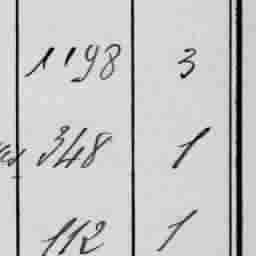 1198 3
348 1
112 1